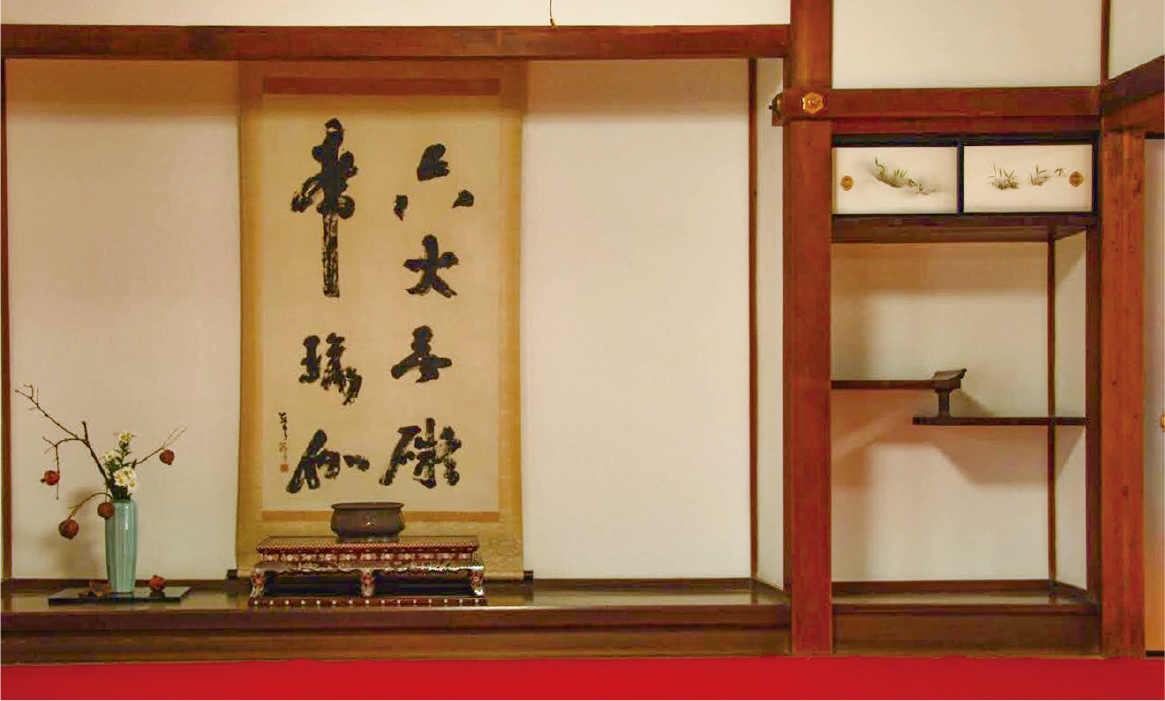 六大無礙
常瑜伽